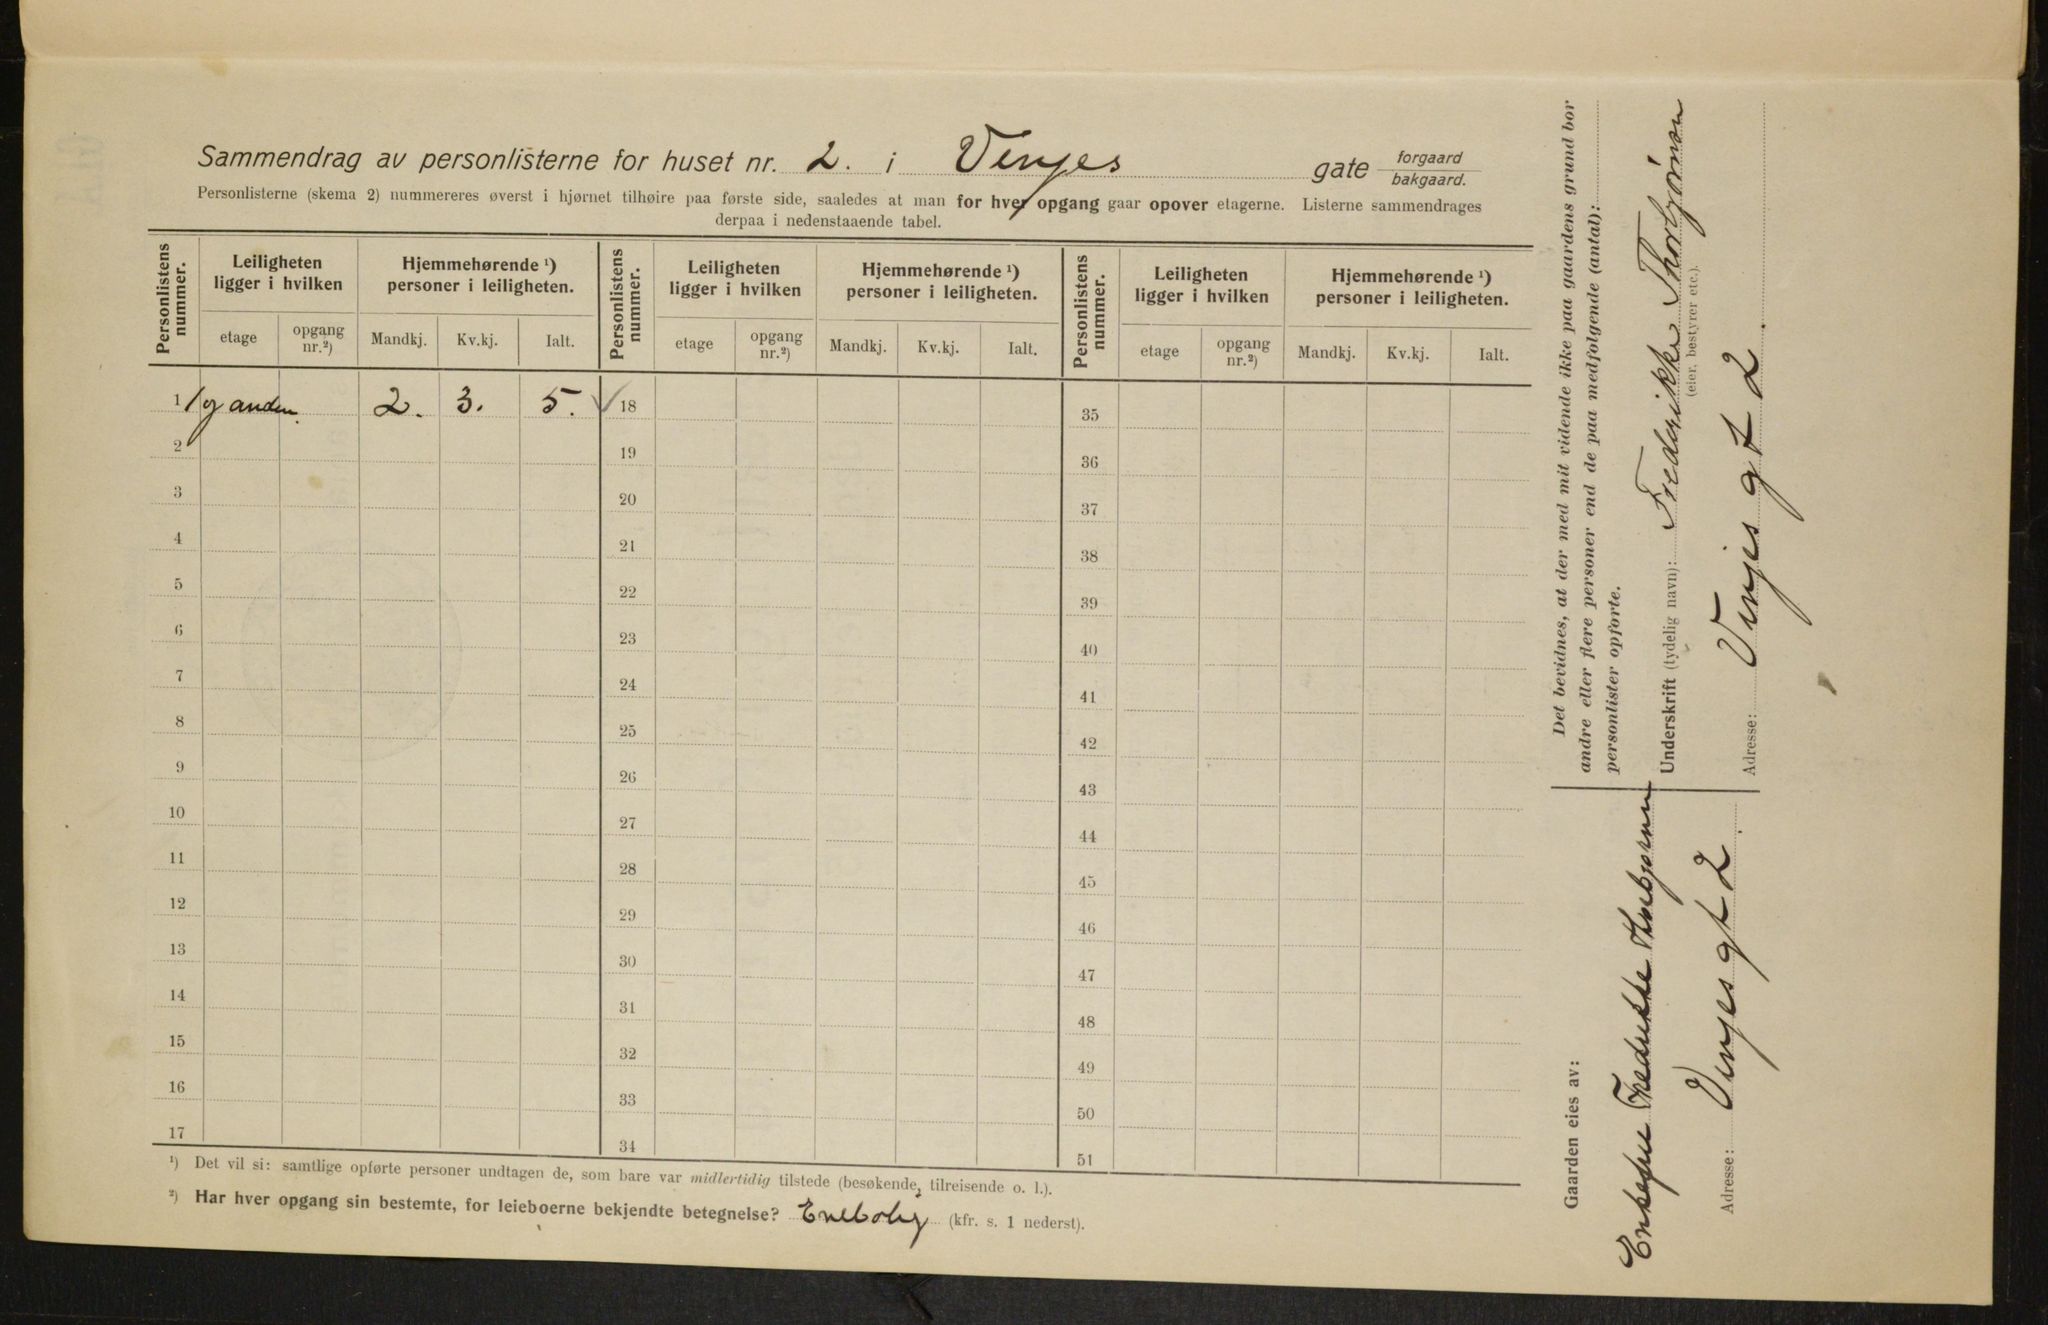 Sammendrag av personlisterne for huset nr. 2. i Vinjes gate forgaard bakgaard.
Personlisterne (skema 2) nummereres øverst i hjørnet tilhøire paa første side, saaledes at man for hver opgang gaar opover etagerne. Listerne sammendrages
derpaa i nedenstaaende tabel.
Personlistens nummer. Leiligheten ligger i hvilken Hjemmehørende ¹) personer i leiligheten. Personlistens nummer. Leiligheten ligger i hvilken Hjemmehørende ¹) personer i leiligheten. Personlistens nummer. Leiligheten ligger i hvilken Hjemmehørende ¹) personer i leiligheten.
etage opgang nr.²) Mandkj. Kv.kj. Ialt. etage opgang nr.²) Mandkj. Kv.kj. Ialt. etage opgang nr.²) Mandkj. Kv.kj. Ialt.
1 1 og anden 2. 3. 5. 18 35
2 19 36
3 20 37
4 21 38
5 22 39
6 23 40
7 24 41
8 25 42
9 26 43
10 27 44
11 28 45
12 29 46
13 30 47
14 31 48
15 32 49
16 33 50
17 34 51
¹) Det vil si: samtlige opførte personer undtagen de, som bare var midlertidig tilstede (besøkende, tilreisende o. l.).
²) Har hver opgang sin bestemte, for leieboerne bekjendte betegnelse? Enebolig (kfr. s. 1 nederst).
Det bevidnes, at der med mit vidende ikke paa gaardens grund bor
andre eller flere personer end de paa medfølgende (antal):
personlister opførte.
Underskrift (tydelig navn): Fredrikke Thorbjörnsen
(eier, bestyrer etc.).
Adresse: Vinjes gt 2.
Gaarden eies av:
Enkefru Fredrikke Thorbjørnsen
Adresse: Vinjes gt 2.